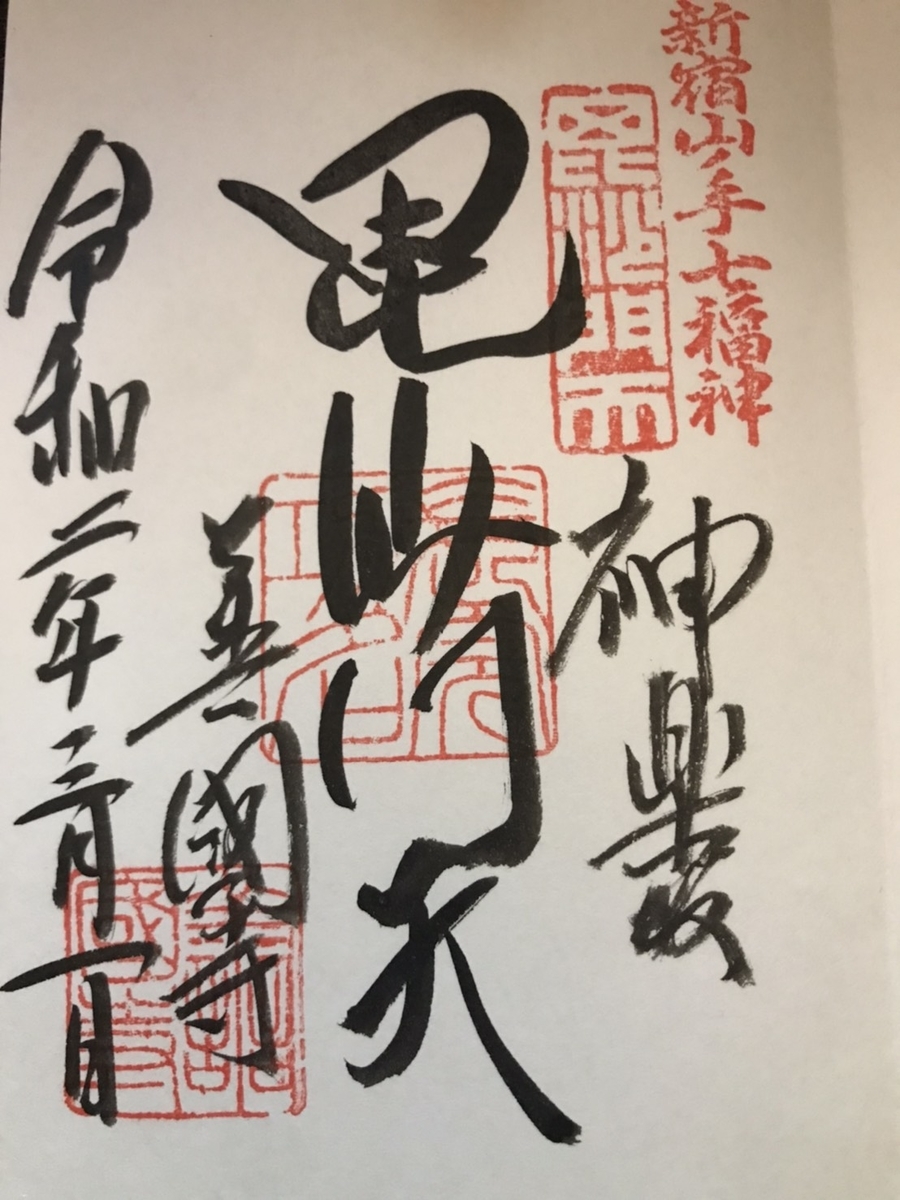 新宿山ノ手七福神
毘沙門天
神楽坂
毘沙門天
善國寺
令和二年三月一日